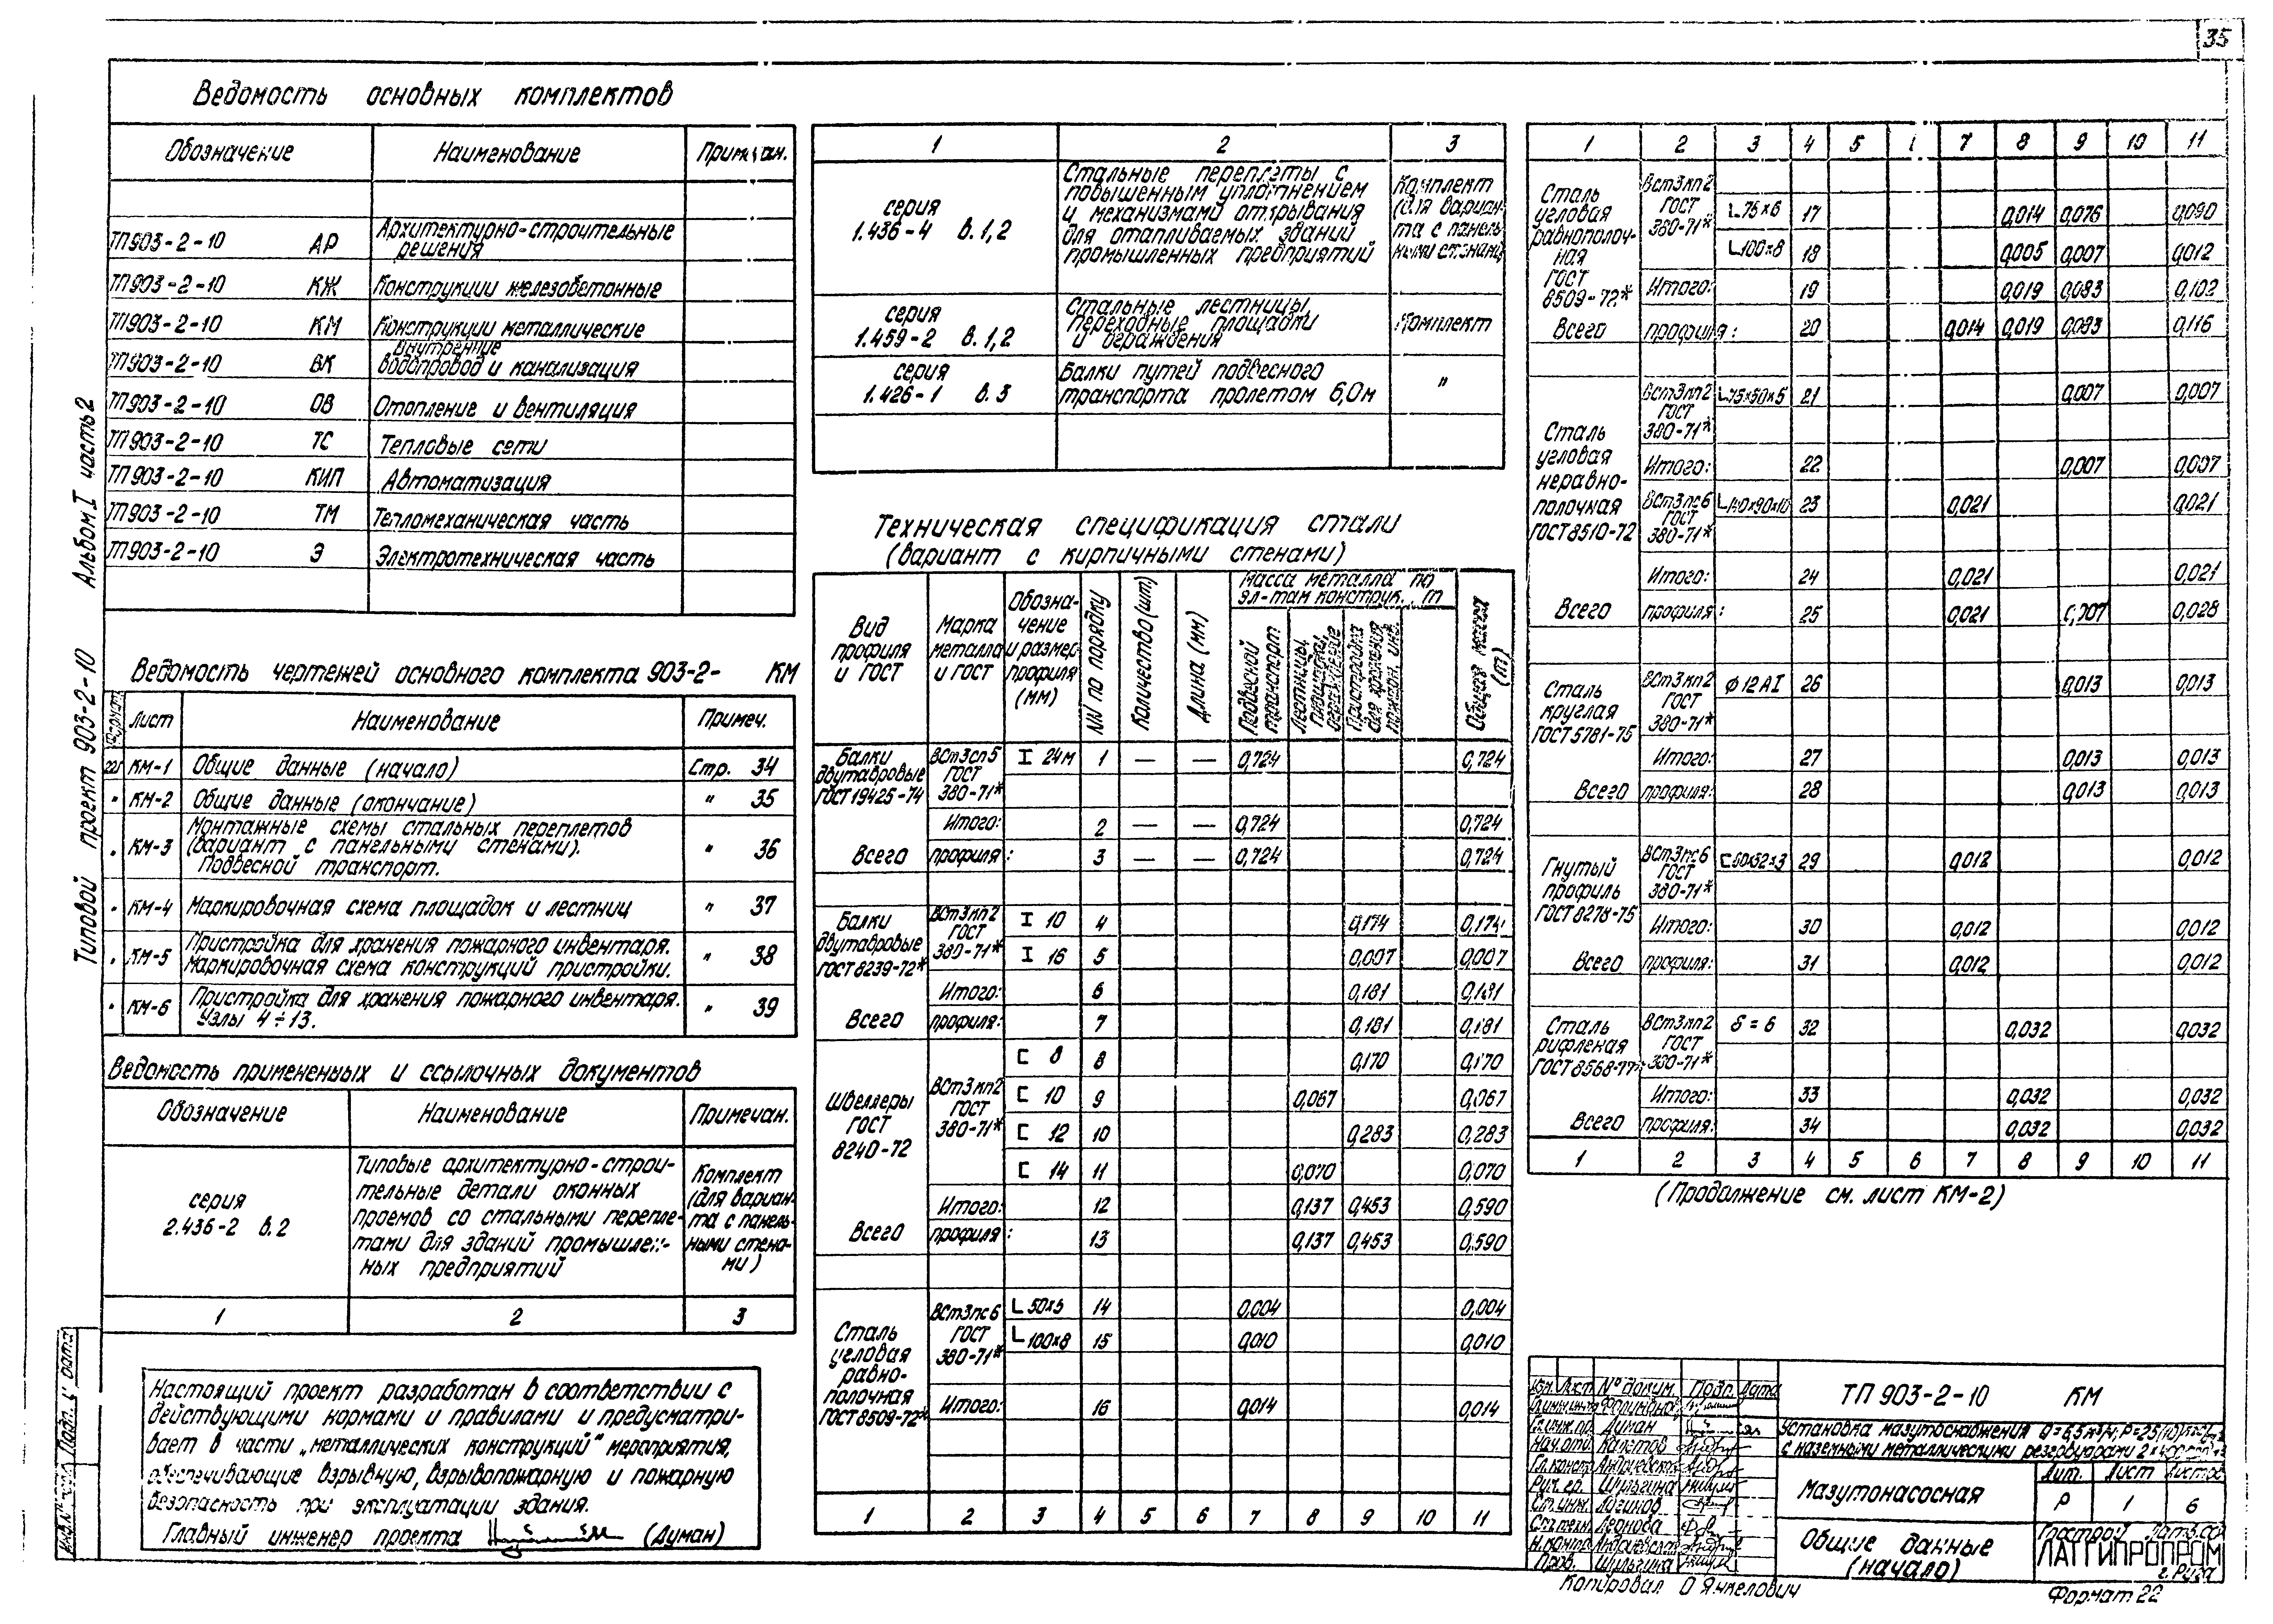 35
Типовой проект 903-2-10 Альбом I часть 2
Ведомость основных комплектов
Обозначение Наименование Примечан.
ТП903-2-10 АР Архитектурно-строительные
решения
ТП903-2-10 КЖ Конструкции железобетонные
ТП903-2-10 КМ Конструкции металлические
ТП903-2-10 ВК Внутренние
водопровод и канализация
ТП903-2-10 ОВ Отопление и вентиляция
ТП903-2-10 ТС Тепловые сети
ТП903-2-10 КИП Автоматизация
ТП903-2-10 ТМ Тепломеханическая часть
ТП903-2-10 Э Электротехническая часть
Ведомость чертежей основного комплекта 903-2- КМ
Формат Лист Наименование Примеч.
22 КМ-1 Общие данные (начало) Стр. 34
" КМ-2 Общие данные (окончание) " 35
Монтажные схемы стальных переплетов
" КМ-3 (вариант с панельными стенами). " 36
Подвесной транспорт.
" КМ-4 Маркировочная схема площадок и лестниц " 37
Пристройка для хранения пожарного инвентаря.
" КМ-5 Маркировочная схема конструкций пристройки. " 38
Пристройка для хранения пожарного инвентаря.
" КМ-6 Узлы 4÷13. " 39
Ведомость примененных и ссылочных документов
Обозначение Наименование Примечан.
серия
2.436-2 в.2
Типовые архитектурно-строи-
тельные детали оконных
проемов со стальными перепле-
тами для зданий промышлен-
ных предприятий
Комплект
(для вариан-
та с панель-
ными стена-
ми)
1 2 3
Настоящий проект разработан в соответствии с
действующими нормами и правилами и предусматри-
вает в части „металлических конструкций" мероприятия,
обеспечивающие взрывную, взрывопожарную и пожарную
безопасность при эксплуатации здания.
Главный инженер проекта (Думан)
1 2 3
серия
1.436-4 в.1,2
Стальные переплеты с
повышенным уплотнением
и механизмами открывания
для отапливаемых зданий
промышленных предприятий
Комплект
(для вариан-
та с панель-
ными стенами)
серия
1.459-2 в.1,2
Стальные лестницы,
переходные площадки
и ограждения
Комплект
серия
1.426-1 в.3
Балки путей подвесного
транспорта пролетом 6,0м
"
Техническая спецификация стали
(вариант с кирпичными стенами)
Вид
профиля
и ГОСТ
Марка
металла
и ГОСТ
Обозна-
чение
и размер
профиля
(мм)
NN по порядку
Количество (шт)
Длина (мм)
Масса металла по
эл-там конструк., т
Подвесной
транспорт
Лестницы,
площадки,
ограждение
Пристройка
для хранения
пожарн. инв.
Общая масса
(т)
Балки
двутавровые
ГОСТ 19425-74
ВСт3сп5
ГОСТ
380-71*
I 24м 1 — — 0,724 0,724
Итого: 2 — — 0,724 0,724
Всего профиля: 3 — — 0,724 0,724
Балки
двутавровые
ГОСТ 8239-72*
ВСт3кп2
ГОСТ
380-71*
I 10 4 0,174 0,174
I 16 5 0,007 0,007
Итого: 6 0,181 0,181
Всего профиля: 7 0,181 0,181
Швеллеры
ГОСТ
8240-72
ВСт3кп2
ГОСТ
380-71*
[ 8 8 0,170 0,170
[ 10 9 0,067 0,067
[ 12 10 0,283 0,283
[ 14 11 0,070 0,070
Итого: 12 0,137 0,453 0,590
Всего профиля: 13 0,137 0,453 0,590
Сталь
угловая
равно-
полочная
ГОСТ 8509-72*
ВСт3пс6
ГОСТ
380-71*
L 50х5 14 0,004 0,004
L 100х8 15 0,010 0,010
Итого: 16 0,014 0,014
1 2 3 4 5 6 7 8 9 10 11
1 2 3 4 5 7 8 9 10 11
Сталь
угловая
равнополоч-
ная
ГОСТ
8509-72*
ВСт3кп2
ГОСТ
380-71*
L 75х6 17 0,014 0,076 0,090
L 100х8 18 0,005 0,007 0,012
Итого: 19 0,019 0,083 0,102
Всего профиля: 20 0,014 0,019 0,083 0,116
Сталь
угловая
неравно-
полочная
ГОСТ 8510-72
ВСт3кп2
ГОСТ
380-71*
L 75х50х5 21 0,007 0,007
Итого: 22 0,007 0,007
ВСт3пс6
ГОСТ
380-71*
L 140х90х10 23 0,021 0,021
Итого: 24 0,021 0,021
Всего профиля: 25 0,021 0,007 0,028
Сталь
круглая
ГОСТ 5781-75
ВСт3кп2
ГОСТ
380-71*
φ 12 АI 26 0,013 0,013
Итого: 27 0,013 0,013
Всего профиля: 28 0,013 0,013
Гнутый
профиль
ГОСТ 8278-75
ВСт3пс6
ГОСТ
380-71*
[ 60х32х3 29 0,012 0,012
Итого: 30 0,012 0,012
Всего профиля: 31 0,012 0,012
Сталь
рифленая
ГОСТ 8568-77*
ВСт3кп2
ГОСТ
380-71*
δ = 6 32 0,032 0,032
Итого: 33 0,032 0,032
Всего профиля: 34 0,032 0,032
1 2 3 4 5 6 7 8 9 10 11
(Продолжение см. лист КМ-2)
Изм. Лист № докум. Подп. Дата
Гл.инж.пр. Думан
Нач.отд. Калетов
Гл.констр. Андриевский
Рук.гр. Шульгина
Ст.инж. Лизиков
Ст.техн. Леонова
Н.контр. Андриевский
Пров. Шульгина
ТП 903-2-10 КМ
Установка мазутоснабжения
с наземными металлическими резервуарами
Мазутонасосная
Лит. Лист Листов
Р 1 6
Общие данные
(начало)
Госстрой Латв.ССР
ЛАТГИПРОПРОМ
г. Рига
Копировал О Янкелович
Формат 22
Подп. и дата